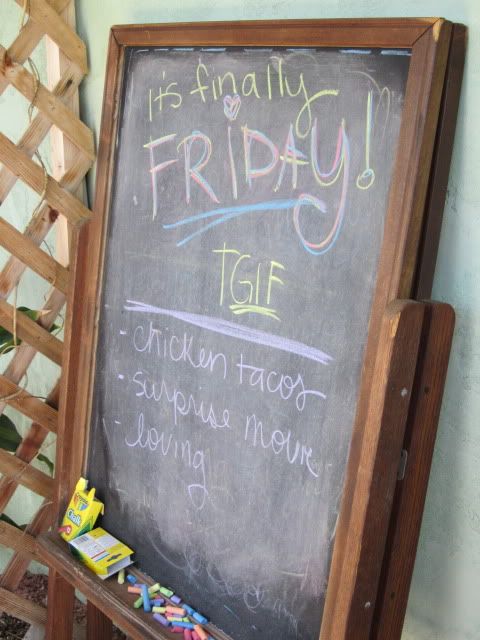 it's finally
FRiDAY!
TGIF
- chicken tacos
- surprise movie
- loving
Crayola
Chalk